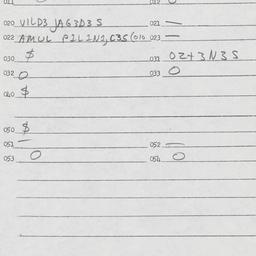 020 VILD3 JAG3D3S 021 —
022 AMUL P2L2N2,C3S(010 023 —
030 $ 031 02+3N3S
032 0 033 0
040 $
050 $
051 — 052 —
053 0 054 0